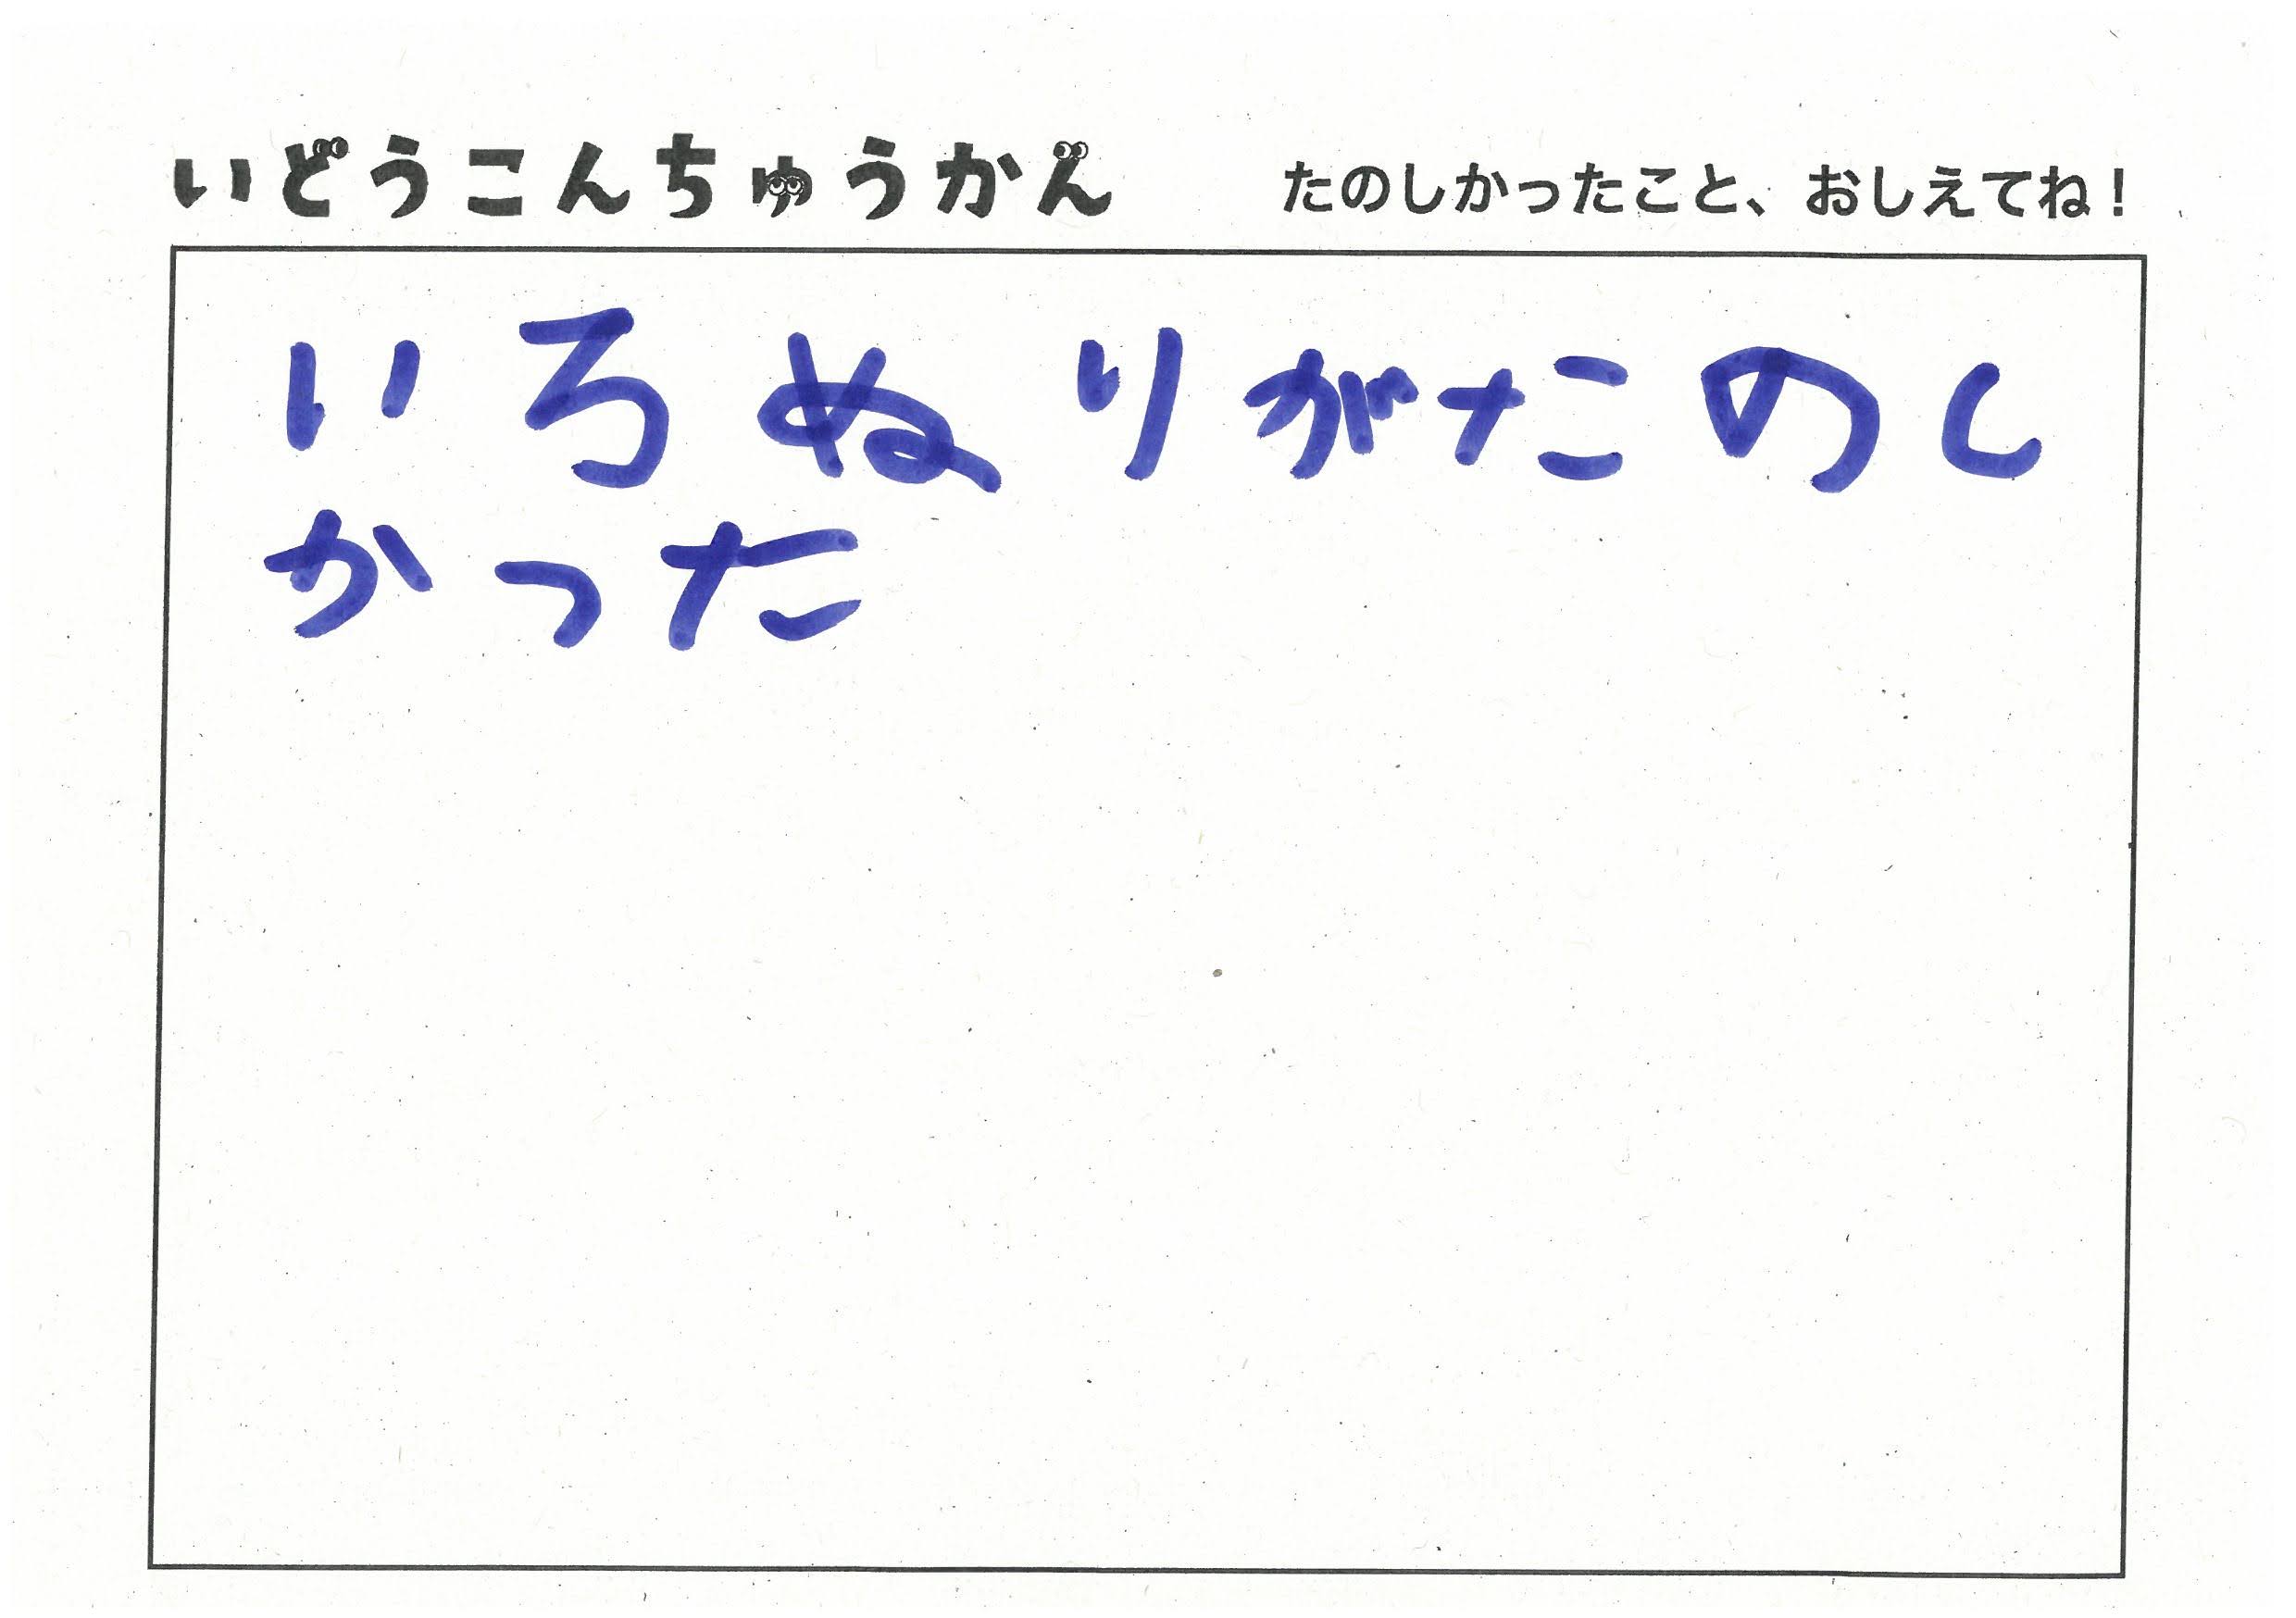 いどうこんちゅうかん　たのしかったこと、おしえてね！
いろぬりがたのし
かった